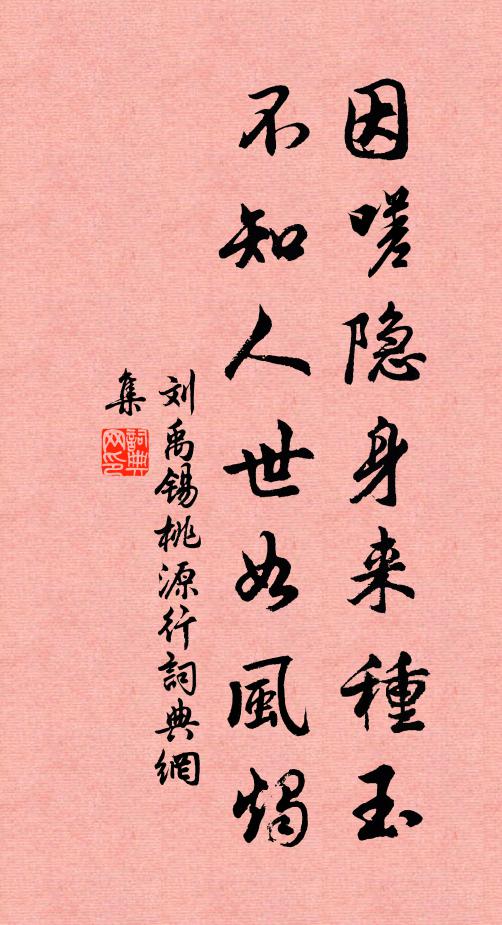 因嗟隐身来種玉
不知人世如風燭
刘禹锡桃源行詞典網
集
詞典网印